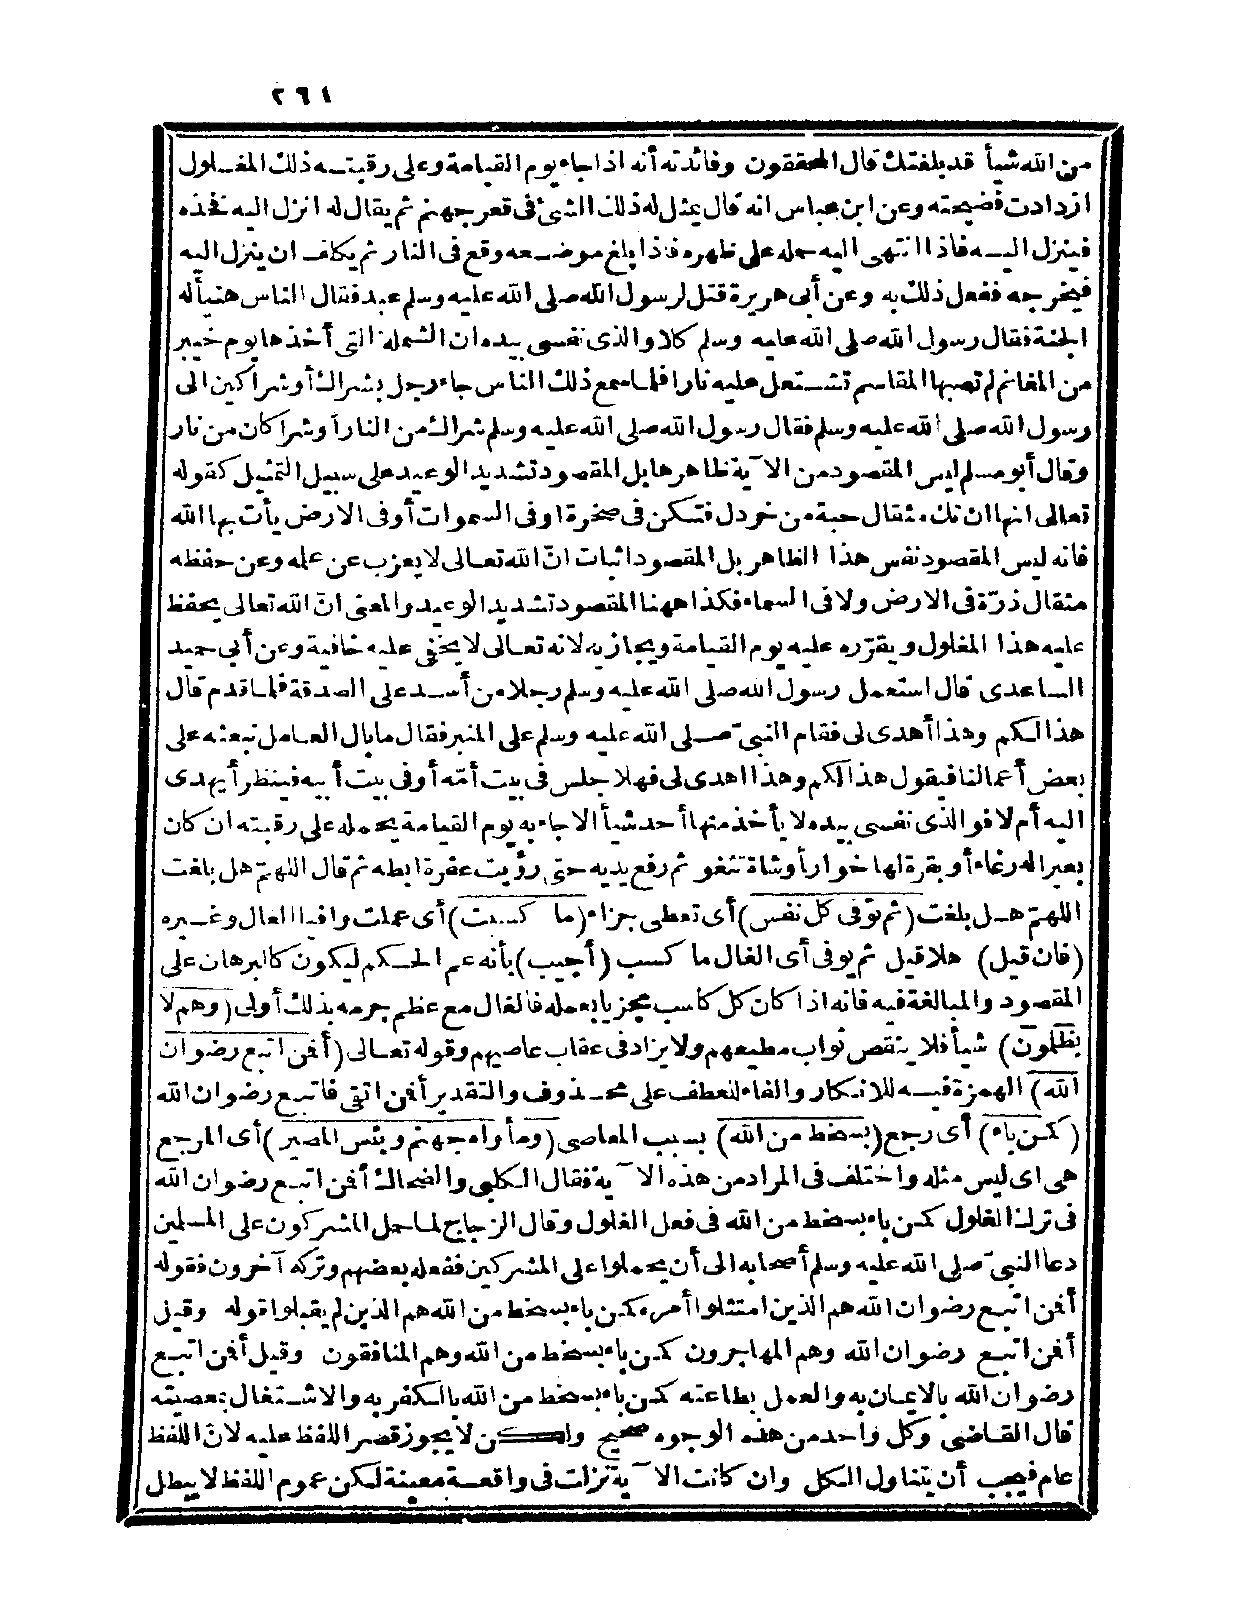 ٢٦١
من الله شيأ قد بلغتك قال المحققون وفائدته أنه اذا جاء يوم القيامة وعلى رقبته ذلك المغلول
ازدادت فضيحته وعن ابن عباس انه قال يمثل له ذلك الشئ فى قعر جهنم ثم يقال له انزل اليه فخذه
فينزل اليه فاذا انتهى اليه حمله على ظهره فاذا بلغ موضعه وقع فى النار ثم يكلف ان ينزل اليه
فيخرجه ففعل ذلك به وعن أبى هريرة قتل لرسول الله صلى الله عليه وسلم عبد فقال الناس هنيأله
الجنة فقال رسول الله صلى الله عليه وسلم كلا والذى نفسى بيده ان الشملة التى أخذها يوم خيبر
من المغانم لم تصبها المقاسم تشتعل عليه نارا فلما سمع ذلك الناس جاء رجل بشراك أو شراكين الى
رسول الله صلى الله عليه وسلم فقال رسول الله صلى الله عليه وسلم شراك من النار أو شراكان من نار
وقال أبو مسلم ليس المقصود من الآية ظاهرها بل المقصود تشديد الوعيد على سبيل التمثيل كقوله
تعالى انها ان تك مثقال حبة من خردل فتكن فى صخرة اوفى السموات أوفى الارض يأت بها الله
فانه ليس المقصود نفس هذا الظاهر بل المقصود اثبات انّ الله تعالى لا يعزب عن علمه وعن حفظه
مثقال ذرّة فى الارض ولا فى السماء فكذا ههنا المقصود تشديد الوعيد والمعنى انّ الله تعالى يحفظ
عليه هذا المغلول ويقرّره عليه يوم القيامة ويجازيه لانه تعالى لا يخفى عليه خافية وعن أبي حميد
الساعدى قال استعمل رسول الله صلى الله عليه وسلم رجلا من أسد على الصدقة فلما قدم قال
هذا لكم وهذا أهدى لى فقام النبىّ صلى الله عليه وسلم على المنبر فقال ما بال العامل نبعثه على
بعض أعمالنا فيقول هذا لكم وهذا اهدى لى فهلا جلس فى بيت أمّه أوفى بيت أبيه فينظر أيهدى
اليه أم لا فوالذى نفسى بيده لا يأخذ منها أحد شيأ الا جاء به يوم القيامة يحمله على رقبته ان كان
بعيرا له رغاء أو بقرة لها خوار أوشاة تثغو ثم رفع يديه حتى رؤيت عفرة ابطه ثم قال اللهمّ هل بلغت
اللهمّ هل بلغت (ثم توفى كل نفس) أى تعطى جزاء (ما كسبت) أى عملت وافيا الغال وغيره
(فان قيل) هلا قيل ثم يوفى أى الغال ما كسب (أجيب) بأنه عم الحكم ليكون كالبرهان على
المقصود والمبالغة فيه فانه اذا كان كل كاسب مجزيا بعمله فالغال مع عظم جرمه بذلك أولى (وهم لا
يظلمون) شيأ فلا ينقص ثواب مطيعهم ولا يزاد فى عقاب عاصيهم وقوله تعالى (أفمن اتبع رضوان
الله) الهمزة فيه للانكار والفاء للعطف على محذوف والتقدير أفمن اتقى فاتبع رضوان الله
(كمن باء) أى رجع (بسخط من الله) بسبب المعاصى (ومأواه جهنم وبئس المصير) أى المرجع
هى اى ليس مثله واختلف فى المراد من هذه الآية فقال الكلبى والضحاك أفمن اتبع رضوان الله
فى ترك الغلول كمن باء بسخط من الله فى فعل الغلول وقال الزجاج لما حمل المشركون على المسلمين
دعا النبىّ صلى الله عليه وسلم أصحابه الى أن يحملوا على المشركين ففعله بعضهم وتركه آخرون فقوله
أفمن اتبع رضوان الله هم الذين امتثلوا أمره كمن باء بسخط من الله هم الذين لم يقبلوا قوله وقيل
أفمن اتبع رضوان الله وهم المهاجرون كمن باء بسخط من الله وهم المنافقون وقيل أفمن اتبع
رضوان الله بالايمان به والعمل بطاعته كمن باء بسخط من الله بالكفر به والاشتغال بمعصيته
قال القاضى وكل واحد من هذه الوجوه صحيح ولكن لا يجوز قصر اللفظ عليه لانّ اللفظ
عام فيجب أن يتناول الكل وان كانت الآية نزلت فى واقعة معينة لكن عموم اللفظ لا يبطل